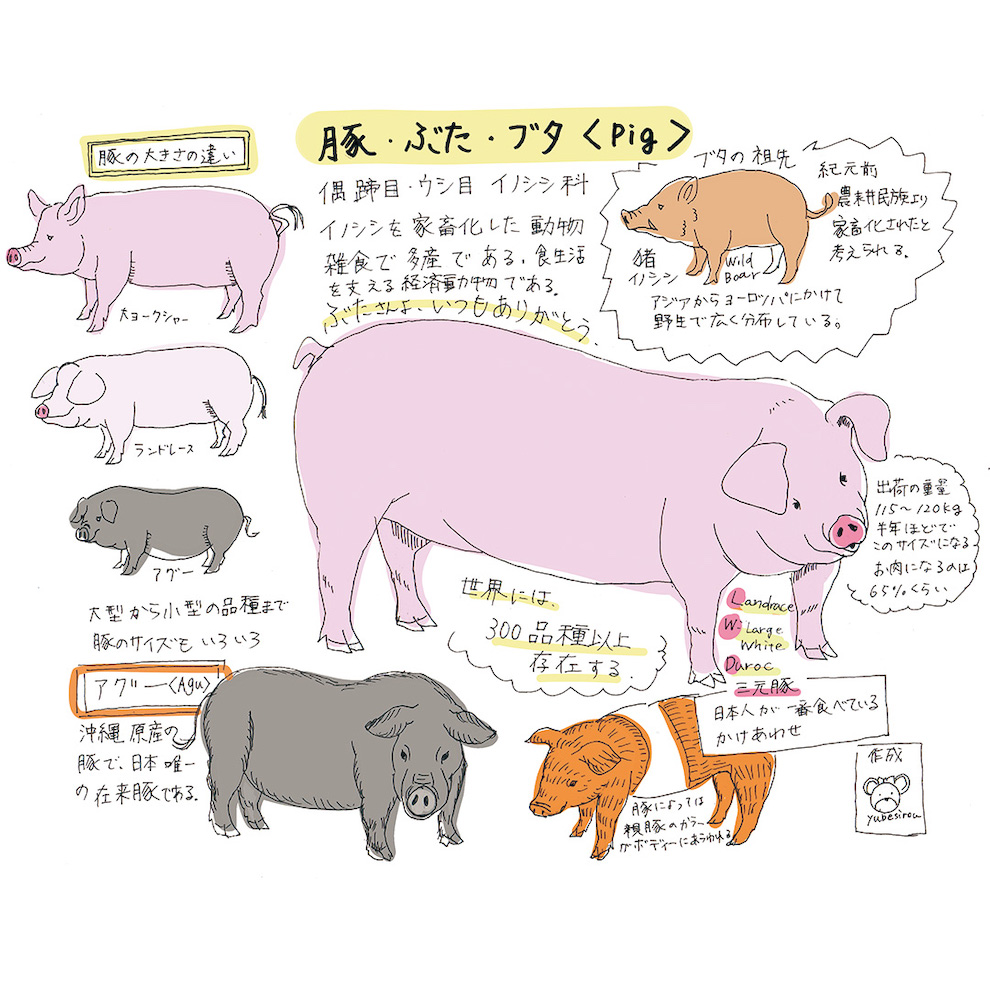 豚・ぶた・ブタ〈Pig〉
偶蹄目・ウシ目 イノシシ科
イノシシを家畜化した動物
雑食で多産である。食生活
を支える経済動物である。
ぶたさんよ、いつもありがとう
豚の大きさの違い
大ヨークシャー
ランドレース
アグー
大型から小型の品種まで
豚のサイズもいろいろ
ブタの祖先
紀元前
農耕民族より
家畜化されたと
考えられる。
猪
イノシシ
Wild
Boar
アジアからヨーロッパにかけて
野生で広く分布している。
出荷の重量
115～120kg
半年ほどで
このサイズになる
お肉になるのは
65%くらい
世界には、
300品種以上
存在する。
Landrace
W-Large
White
Duroc
三元豚
日本人が一番食べている
かけあわせ
アグー〈Agu〉
沖縄原産の
豚で、日本唯一
の在来豚である。
豚によっては
親豚のカラー
がボディーにあらわれる
作成
yubesirou